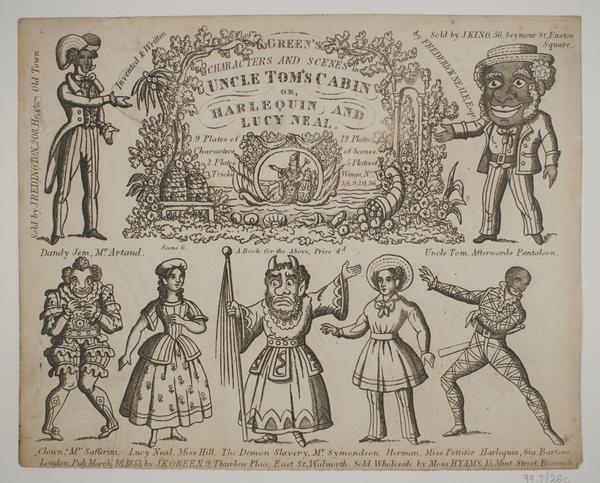 GREEN'S
CHARACTERS AND SCENES in
UNCLE TOM'S CABIN
OR,
HARLEQUIN, AND
LUCY NEAL.
9 Plates of
Characters
2 Plates
Tricks
13 Plates
of Scenes.
5 Plates of
Wings, Nos
3,6,9,20,36
Invented & Written
by FREDERICK NEALE Esqr
Sold by J.REDINGTON, 208, Hoxton Old Town.
Sold by J KING, 56, Seymour St, Euston
Square.
Dandy Jem, Mr. Artaud.
Scene 6.
A Book for the Above, Price 4d
Uncle Tom, Afterwards Pantaloon.
Clown, Mr. Safferini. Lucy Neal, Miss Hill. The Demon Slavery, Mr. Symondson. Herman, Miss Pettifer Harlequn, Sig
London, Pub March, 28, 1853, by J.K.GREEN, 9, Thurlow Place, East St, Walworth. Sold Wholesale by Mess HYAMS, 15, Street,
99.7/26c